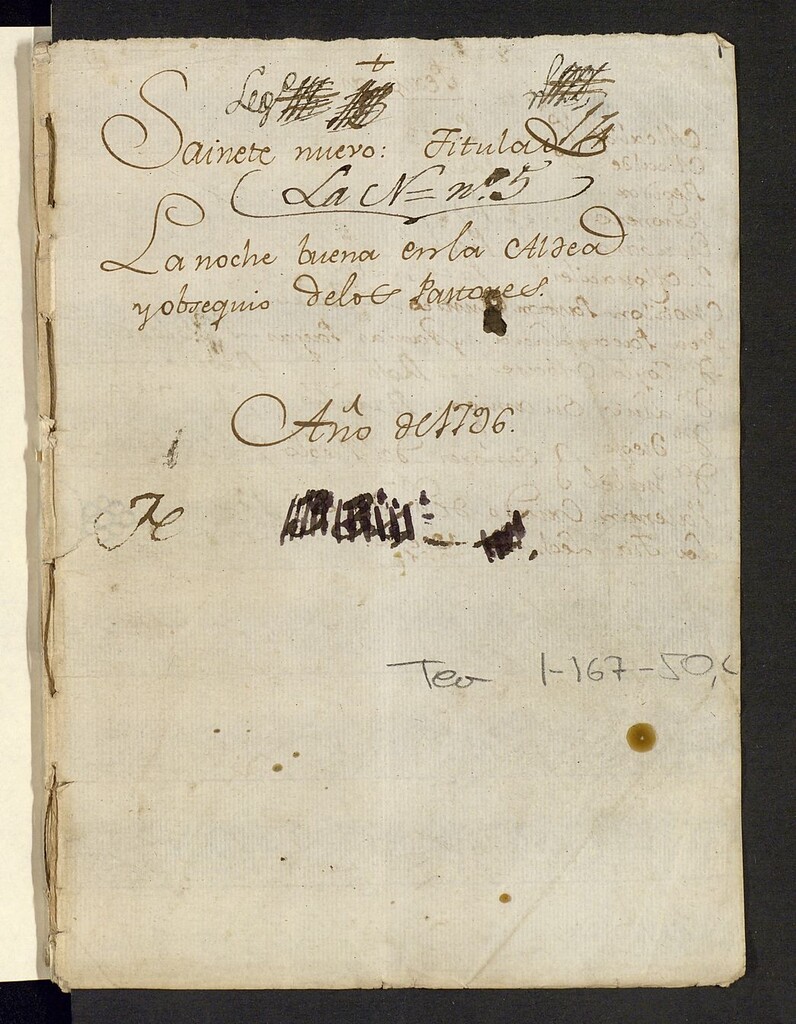 Leg.º
14
Sainete nuevo: Titulado
La N= nº 5
La noche buena en la Aldea
y obsequio delos Pastores.
Año de 1796.
Tea 1-167-50, c